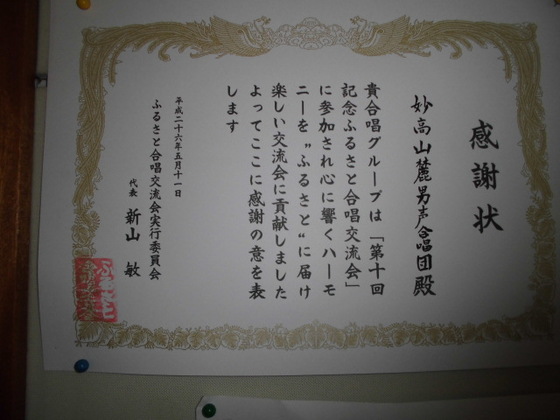 感謝状
妙高山麓男声合唱団殿
貴合唱グループは「第十回
記念ふるさと合唱交流会」
に参加され心に響くハーモ
ニーを〝ふるさと〟に届け
楽しい交流会に貢献しました
よってここに感謝の意を表
します
平成二十六年五月十一日
ふるさと合唱交流会実行委員会
代表 新山 敏